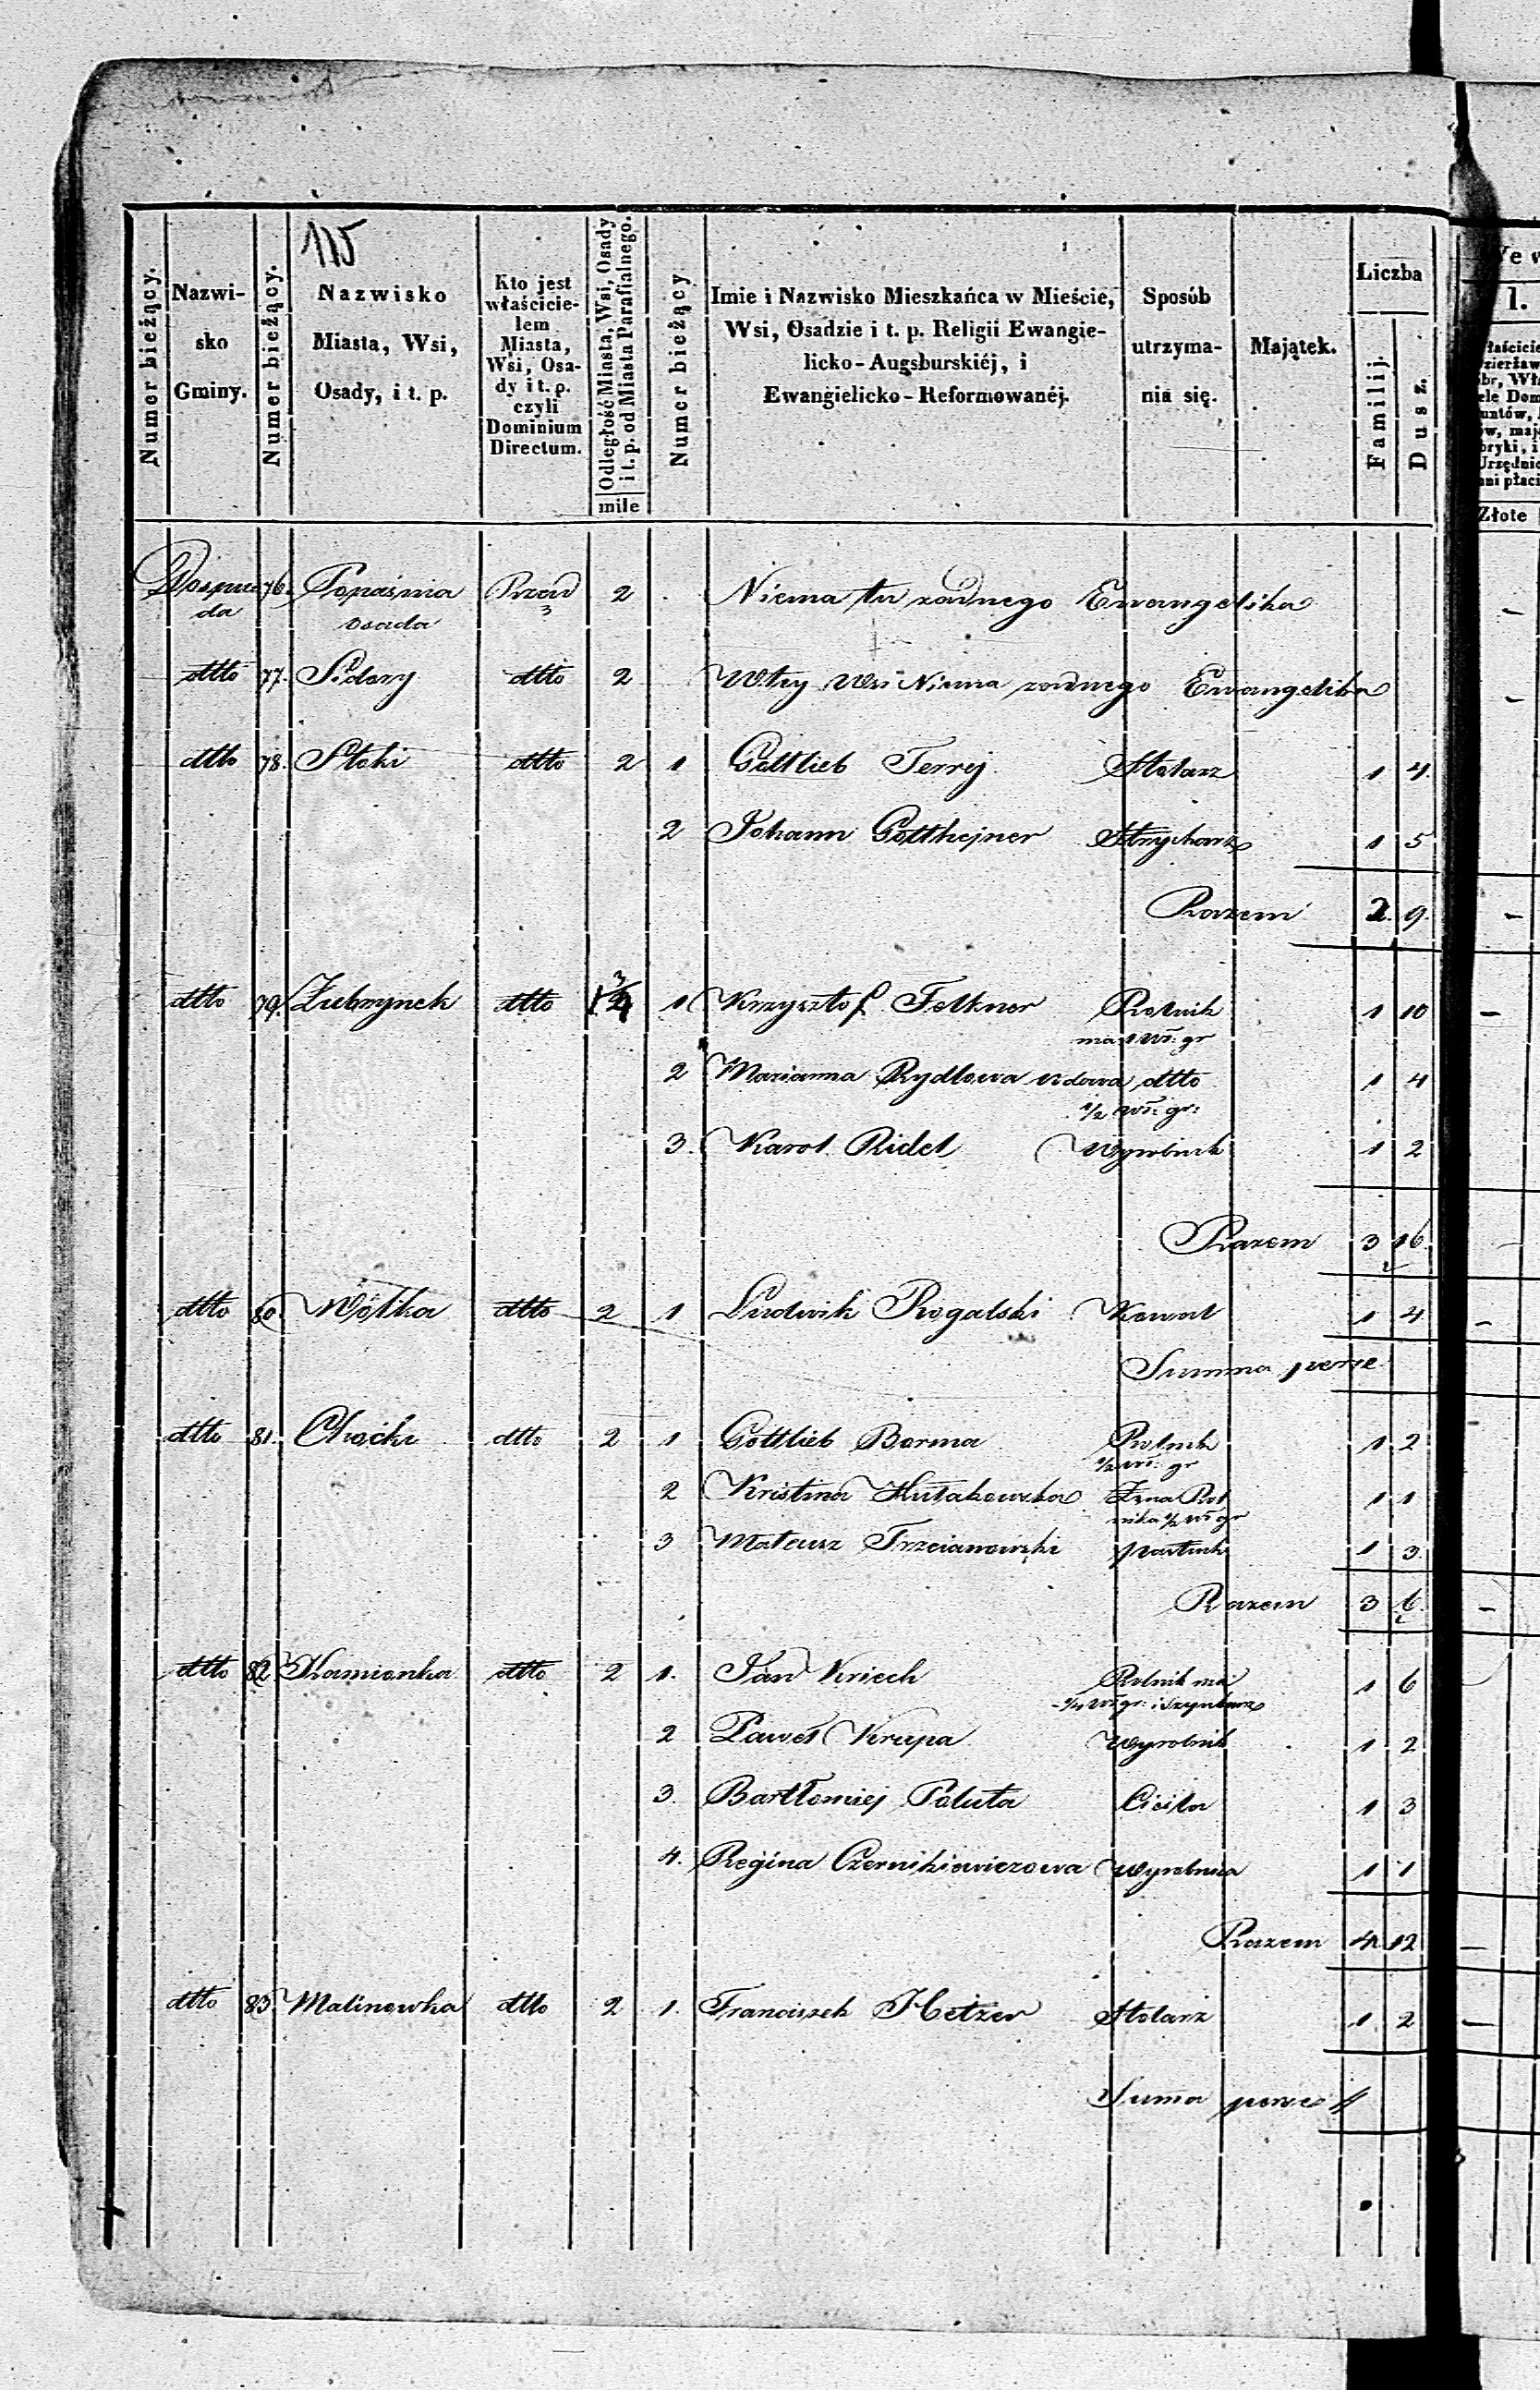 115
Numer bieżący.
Nazwi-
sko
Gminy.
Numer bieżący.
Nazwisko
Miasta, Wsi,
Osady, i t. p.
Kto jest
właścicie-
lem
Miasta,
Wsi, Osa-
dy i t. p.
czyli
Dominium
Directum.
Odległość Miasta, Wsi, Osady
i t. p. od Miasta Parafialnego.
mile
Numer bieżący
Imie i Nazwisko Mieszkańca w Mieście,
Wsi, Osadzie i t. p. Religii Ewangie-
licko-Augsburskiéj, i
Ewangielicko-Reformowanéj.
Sposób
utrzyma-
nia się.
Majątek.
Liczba
Familij.
Dusz.
1.
Złote
Dospuda 76. Popaśnia Rząd 2 Niema tu żadnego Ewangelika
osada
dtto 77. Sidory dtto 2 W tey Wsi Niema żadnego Ewangelika
dtto 78. Stoki dtto 2 1 Gottlieb Terrej Stolarz 1 4.
2 Johann Gotthejner Strycharz 1 5
Razem 2. 9.
dtto 79. Żubrynek dtto 1 3/4 1 Krzysztof Felkner Rolnik 1 10
ma 1 wł: gr
2 Marianna Rydlowa wdowa dtto 1 4
1/2 wł: gr:
3. Karol Ridel Wyrobnik 1 2
Razem 3 16
dtto 80. Wólka dtto 2 1 Ludwik Rogalski Kowal 1 4
Summa per se
dtto 81. Choćki dtto 2 1 Gottlieb Borma Rolnik 1 2
1/2 wł: gr
2 Kristina Kułakowska Żona Rol 1 1
nika 1/2 wł gr
3 Mateusz Trzcianowski pastuch 1 3
Razem 3 6
dtto 82. Kamionka dtto 2 1. Jan Kriech Rolnik ma 1 6
1/4 wł gr: i szynkarz
2 Paweł Krupa Wyrobnik 1 2
3. Bartłomiej Paluta Cieśla 1 3
4. Regina Czernikiewiczowa Wyrobnica 1 1
Razem 4 12
dtto 83. Malinowka dtto 2 1. Franciszek Hetzer Stolarz 1 2
Suma per se